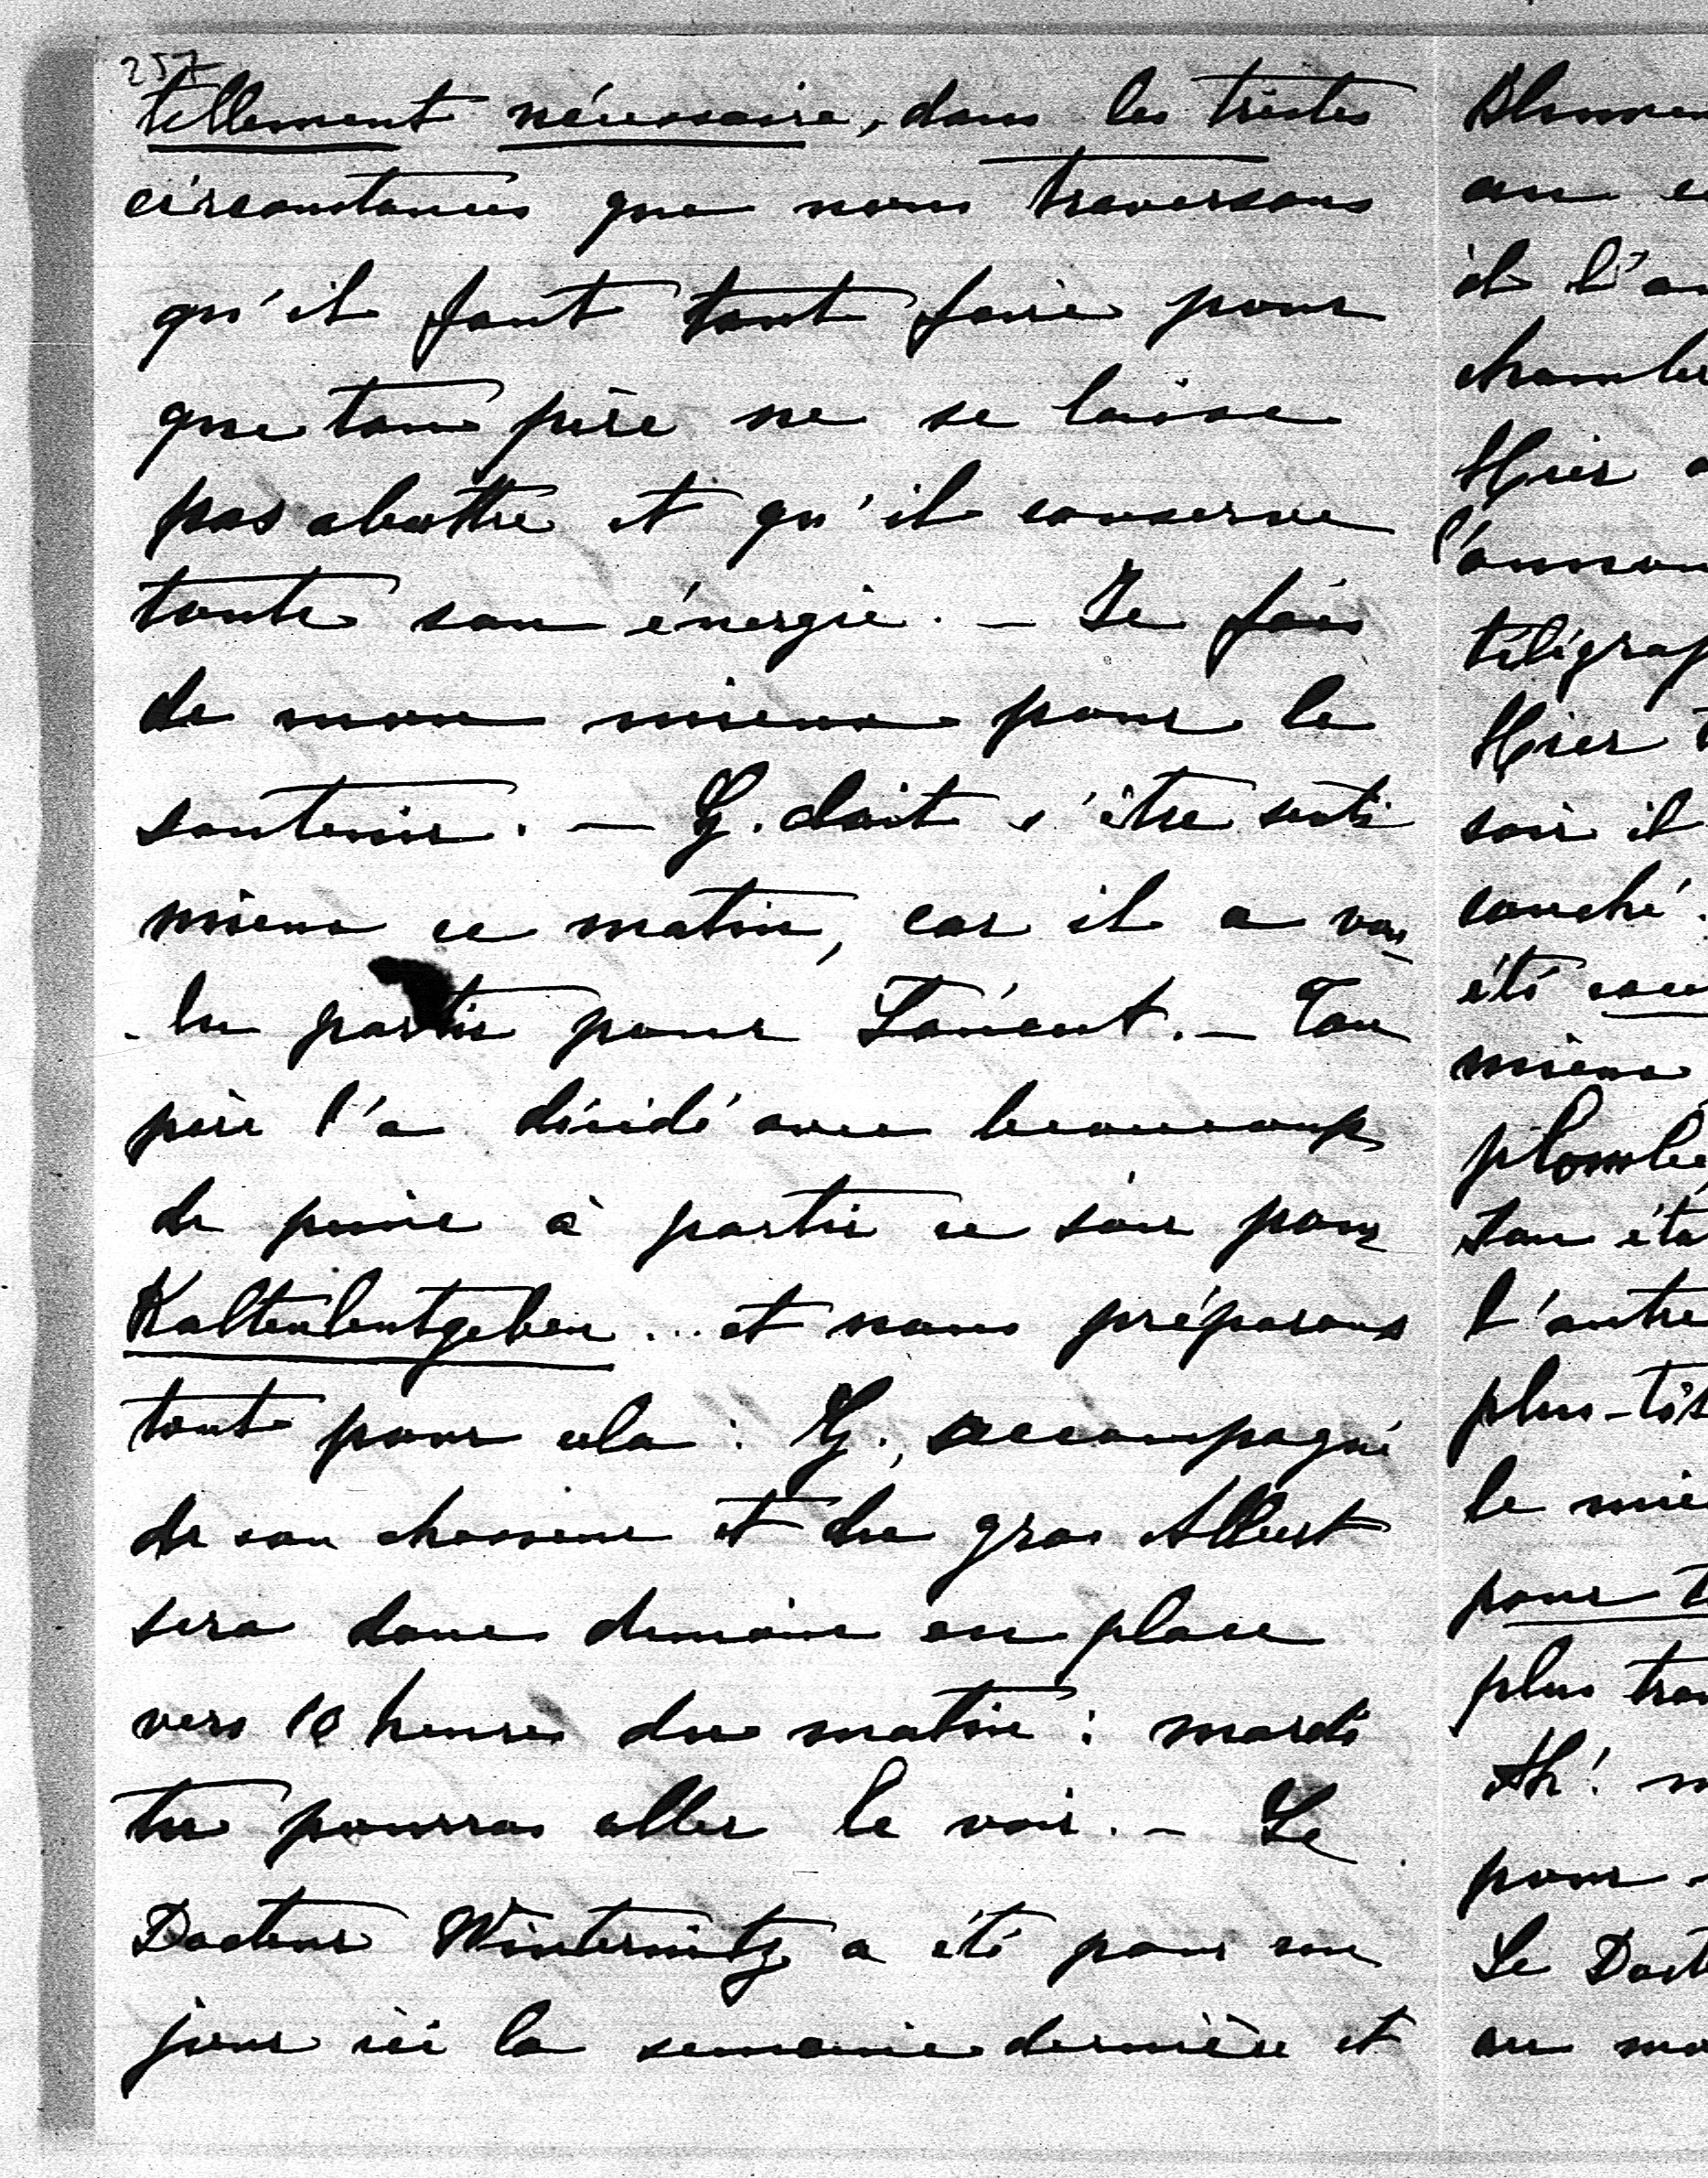 257
tellement nécessaire, dans les tristes
circonstances que nous traversons
qu'il faut tant faire pour
que ton père ne se laisse
pas abattre et qu'il conserve
toute son énergie. — Je fais
de mon mieux pour le
soutenir. — G. doit s'être senti
mieux ce matin, car il a vou-
-lu partir pour — Ton
père l'a décidé avec beaucoup
de peine à partir ce soir pour
Kaltenleutgeben ... et nous préparons
tout pour cela : G. accompagné
de son chasseur et du gros Albert
sera donc demain en place
vers 10 heures du matin : mardi
tu pourras aller le voir. — Le
Docteur Winternitz a été pour un
jour ici la semaine dernière et
an
il l'a
Hier
l'annon
télégrap
Hier
soir il
couché
été
mieux
plombé
son éta
l'autre
plus-tôt
le mie
pour t
plus
Ah!
pour
Le Doct
au mo